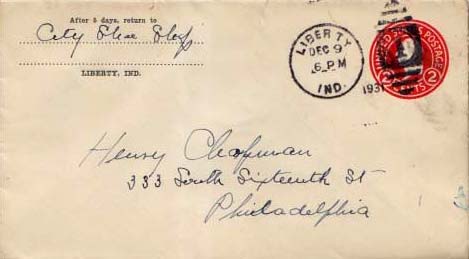 After 5 days, return to
City Shoe Shop
LIBERTY, IND.
LIBERTY
DEC 9
6 PM
IND.
1931
UNITED STATES POSTAGE
2 CENTS 2
Henry Chapman
333 South Sixteenth St
Philadelphia